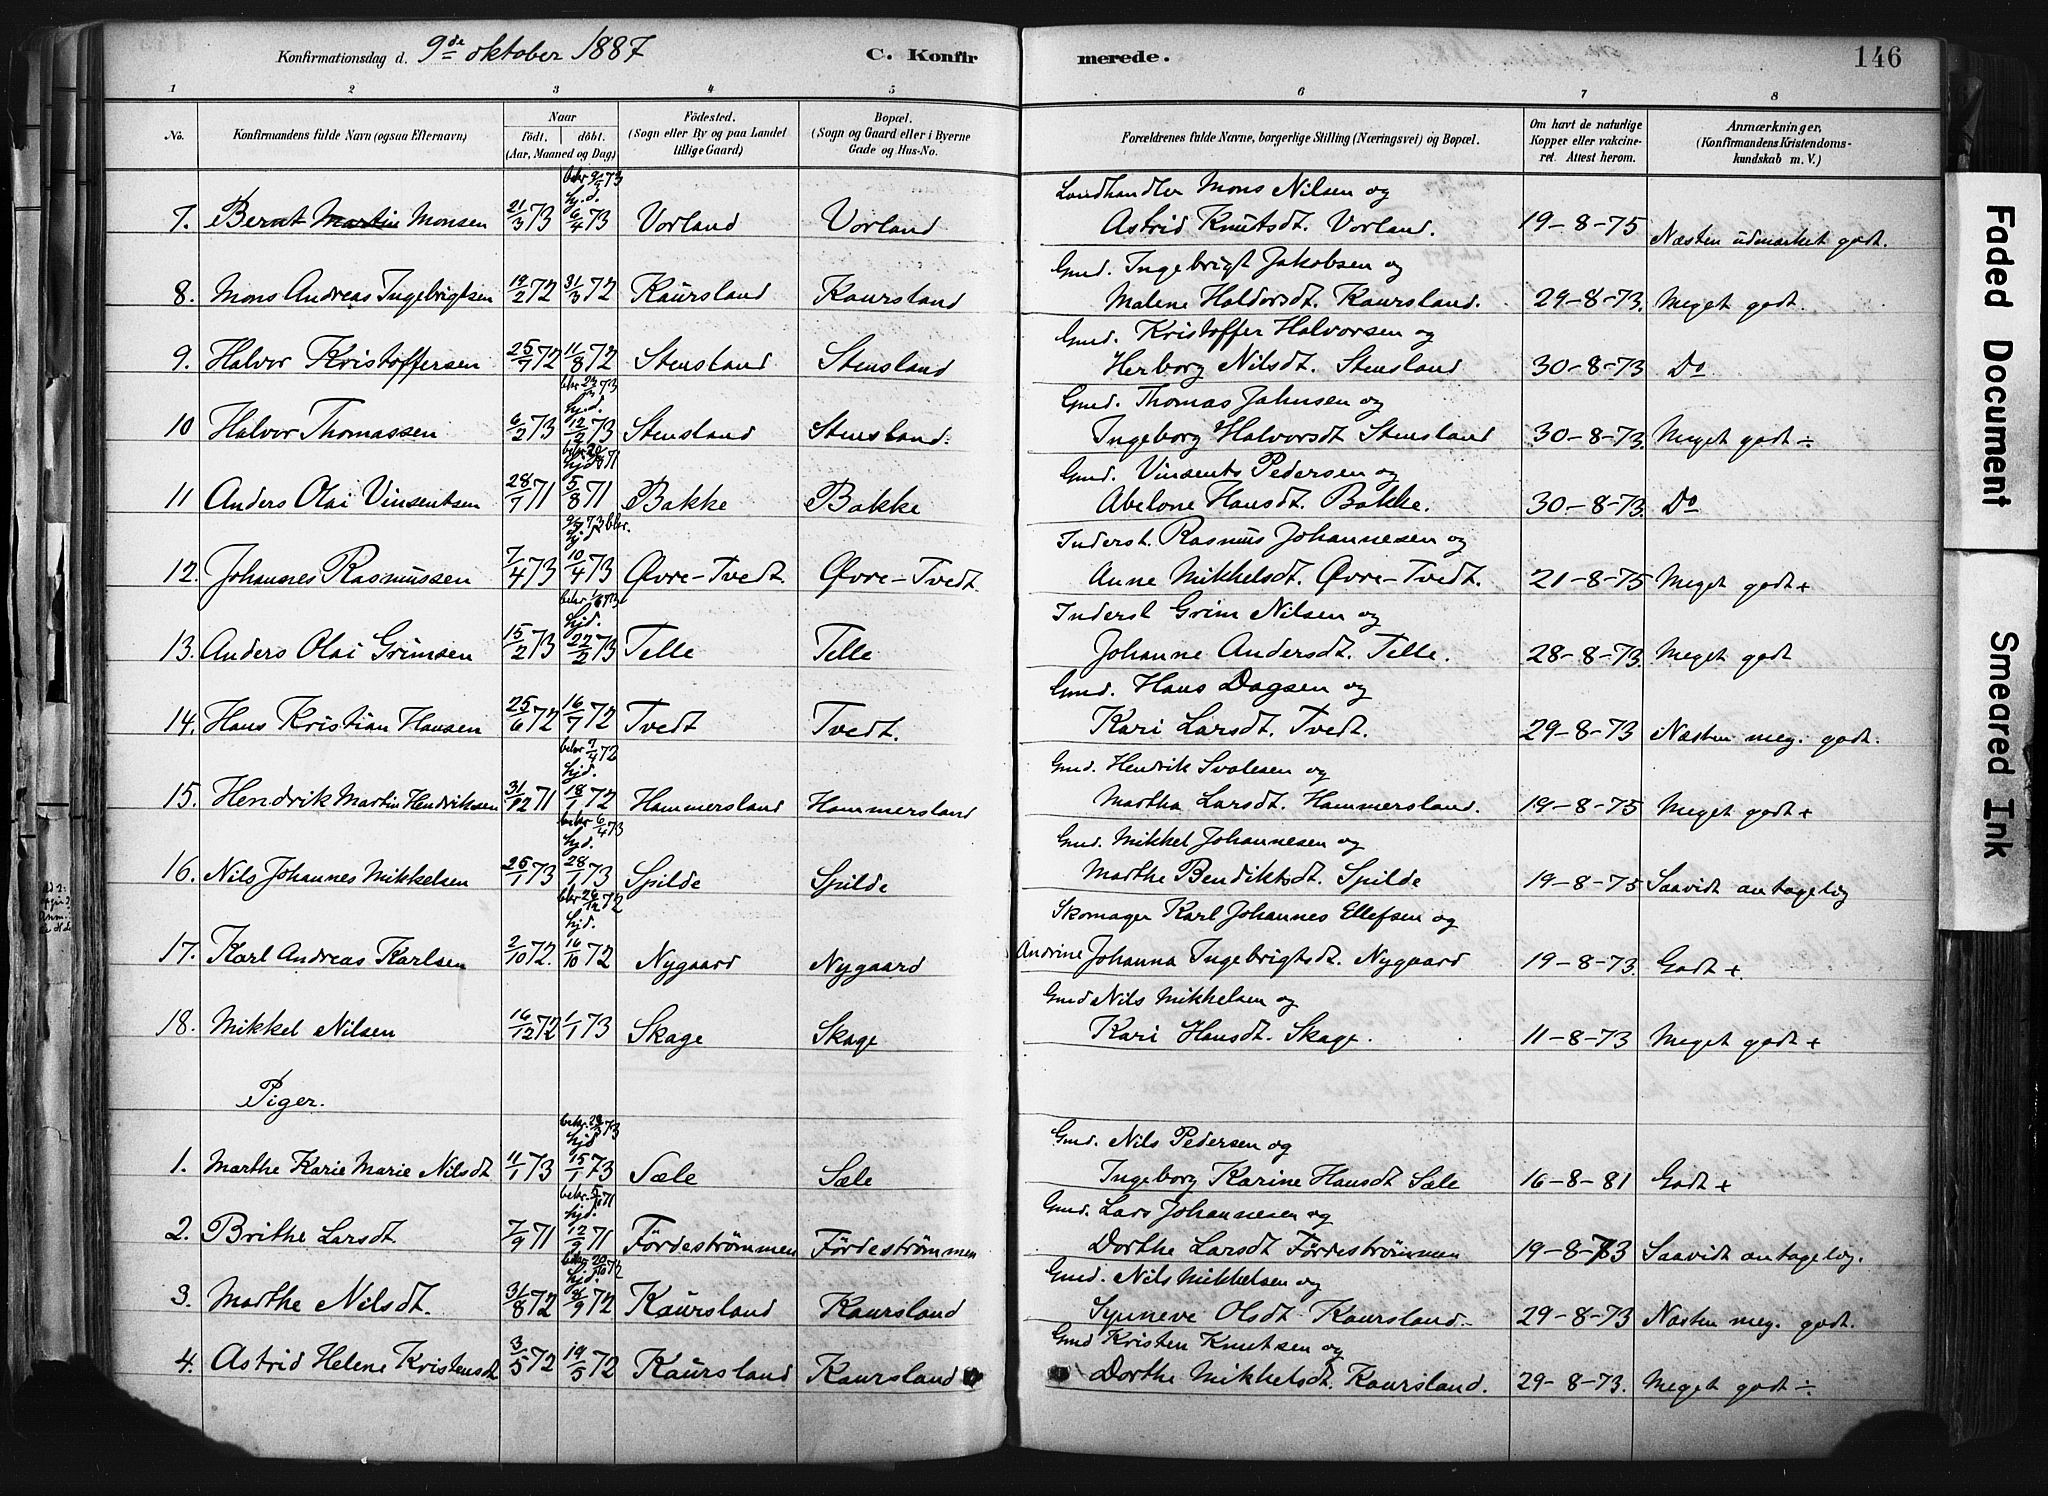 Konfirmationsdag d. 9de oktober 1887 C. Konfirmerede. 146
1 2 3 4 5 6 7 8
No. Konfirmandens fulde Navn (ogsaa Efternavn) Naar födt. döbt. (Aar, Maaned og Dag) Födested. (Sogn eller By og paa Landet tillige Gaard) Bopæl. (Sogn og Gaard eller i Byerne Gade og Hus-No. Forældrenes fulde Navne, borgerlige Stilling (Næringsvei) og Bopæl. Om havt de naturlige Kopper eller vakcineret. Attest herom. Anmærkninger, (Konfirmandens Kristendomskundskab m. V.)
bkr 9/5 73
hj. d. Landhandler Mons Nilsen og
7. Bernt Martin Monsen 21/3 73 6/4 73 Vorland Vorland Astrid Knutsdt. Vorland. 19-8-75 Næsten udmærket godt.
Gmd. Ingebrigt Jakobsen og
8. Mons Andreas Ingebrigtsen 19/2 72 31/3 72 Kaursland Kaursland Malene Haldorsdt. Kaursland. 29-8-73. Meget godt.
Gmd. Kristoffer Halvorsen og
9. Halvor Kristoffersen 25/7 72 11/8 72 Stensland Stensland Herborg Nilsdt. Stensland 30-8-73 Do
hj.d. Gmd. Thomas Jahnsen og
10 Halvor Thomassen 6/2 73 12/2 73 Stensland Stensland. Ingeborg Halvorsdt Stensland 30-8-73. Meget godt ÷
hjd Gmd. Vinsents Pedersen og
11 Anders Olai Vinsentsen 28/7 71 5/8 71 Bakke Bakke Abelone Hansdt. Bakke. 30-8-73. Do
Inderst. Rasmus Johannesen og
12. Johannes Rasmussen 7/4 73 10/4 73 Øvre-Tvedt. Øvre-Tvedt. Anne Mikkelsdt. Øvre-Tvedt. 21-8-75 Meget godt +
hjd. Inderst Grim Nilsen og
13. Anders Olai Grimsen 15/2 73 22/2 73 Telle Telle Johanne Andersdt. Telle. 28-8-73. Meget godt
Gmd. Hans Dagsen og
14. Hans Kristian Hansen 25/6 72 16/7 72 Tvedt Tvedt. Kari Larsdt. Tvedt. 29-8-73 Næsten meg. godt.
bekr 7/4 72
hjd. Gmd. Hendrik Svalesen og
15. Hendrik Martin Hendriksen 31/12 71 18/1 72 Hammersland Hammersland Martha Larsdt. Hammersland. 19-8-75 Meget godt +
bekr 6/4 73
hjd. Gmd. Mikkel Johannesen og
16. Nils Johannes Mikkelsen 25/1 73 28/1 73 Spilde Spilde Marthe Bendiktsdt. Spilde 19-8-75 Saavidt antagelig
bkr 26/12 72
hjd. Skomager Karl Johannes Ellefsen og
17. Karl Andreas Karlsen 2/10 72. 16/10 72 Nygaard Nygaard Andrine Johanna Ingebrigtsdt. Nygaard 19-8-73. Godt +
Gmd Nils Mikkelsen og
18. Mikkel Nilsen 16/12 72 1/1 73 Skage Skage Kari Hansdt. Skage. 11-8-73 Meget godt +
Piger.
hjd Gmd. Nils Pedersen og
1. Marthe Karie Marie Nilsdt 11/1 73 15/1 73 Sæle Sæle Ingeborg Karine Hansdt Sæle 16-8-81 Godt +
hjd. Gmd. Lars Johannesen og
2. Brithe Larsdt 7/9 71 12/9 71 Fördeströmmen Fördeströmmen Dorthe Larsdt Fördeströmmen 19-8-73 Saavidt antagelig.
bekr. 20/10 72
hjd. Gmd. Nils Mikkelsen og
3. Marthe Nilsdt. 31/8 72 8/9 72 Kaursland Kaursland Synneve Olsdt Kaursland. 29-8-73 Næsten meg. godt.
Gmd Kristen Knutsen og
4. Astrid Helene Kristensdt 3/5 72 19/5 72 Kaursland Kaursland Dorthe Mikkelsdt. Kaursland. 29-8-73. Meget godt ÷
Faded Document
Smeared Ink